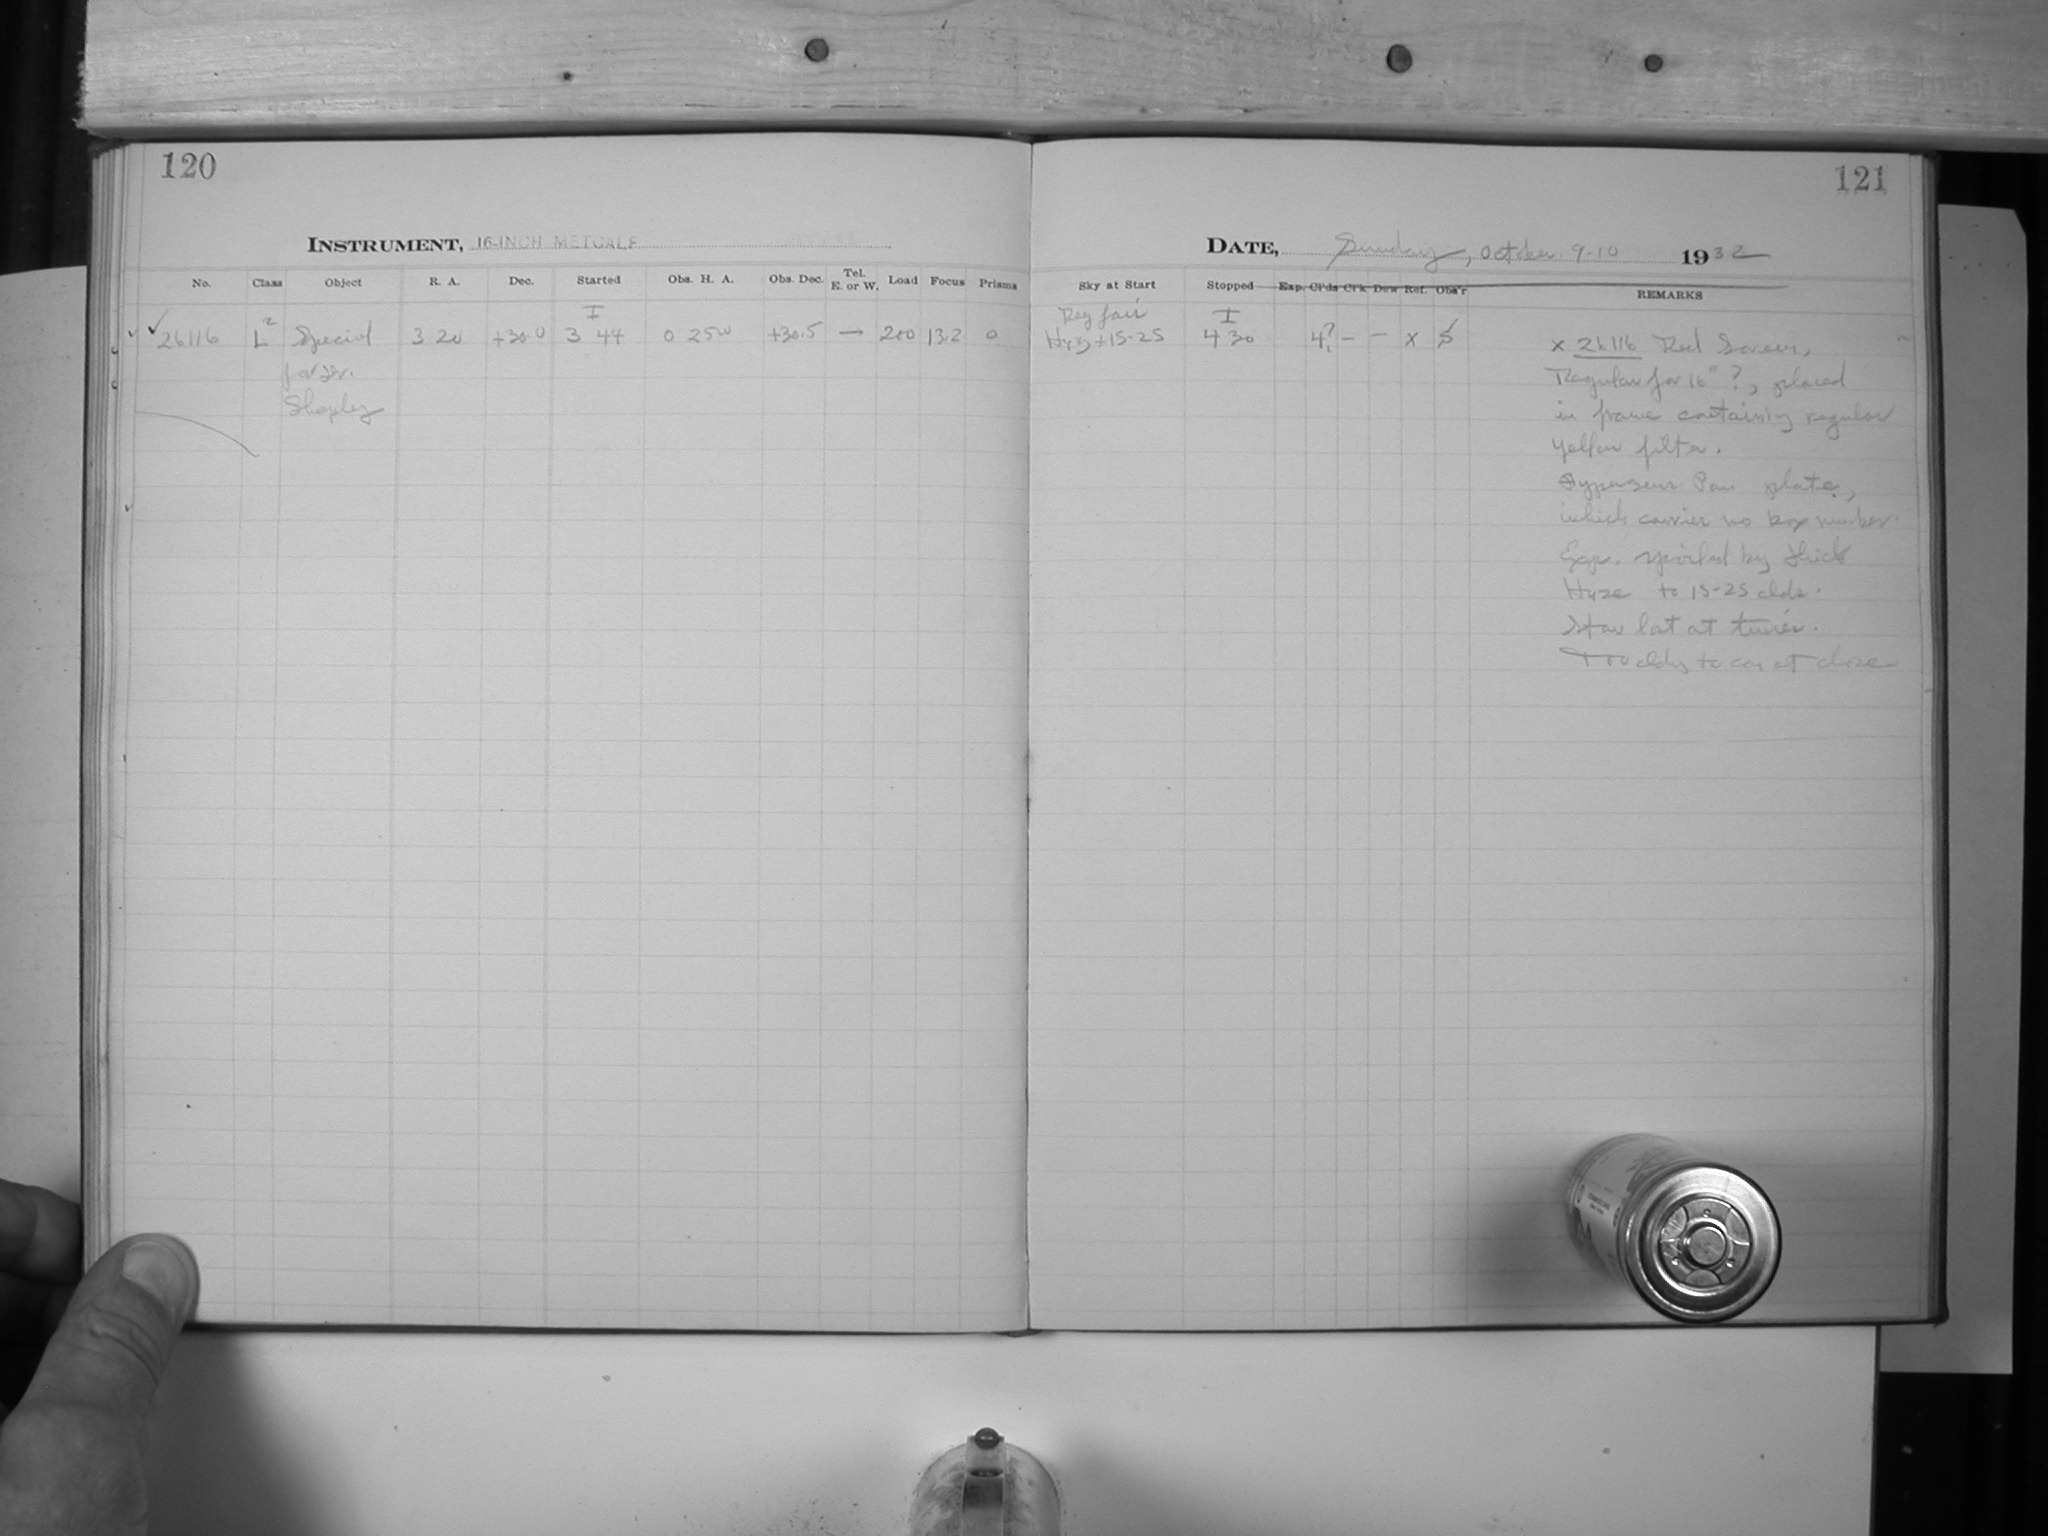 120
121
INSTRUMENT, 16-INCH METCALF
DATE, Sunday, October 9-10 1932
No. Class Object R. A. Dec. Started Obs. H. A. Obs. Dec. Tel. E. or W. Load Focus Prisms
Sky at Start Stopped Exp. Cl'ds Cl'k Dew Ref. Obs'r REMARKS
I
fair I
✓ 26116 L² Special 3 20 +30.0 3 44 0 25 W +30.5 — 200 13.2 0
Hzy+15-25 4 30 4? — — x S
for Dr.
Shapley
x 26116 Red Screen,
Regular for 16" ?, placed
in frame containing regular
yellow filter.
Hypersens. Pan plate,
which carries no box number.
Exp. spoiled by thick
Haze to 15-25 clds.
Star lost at times.
Too cldy to go at close